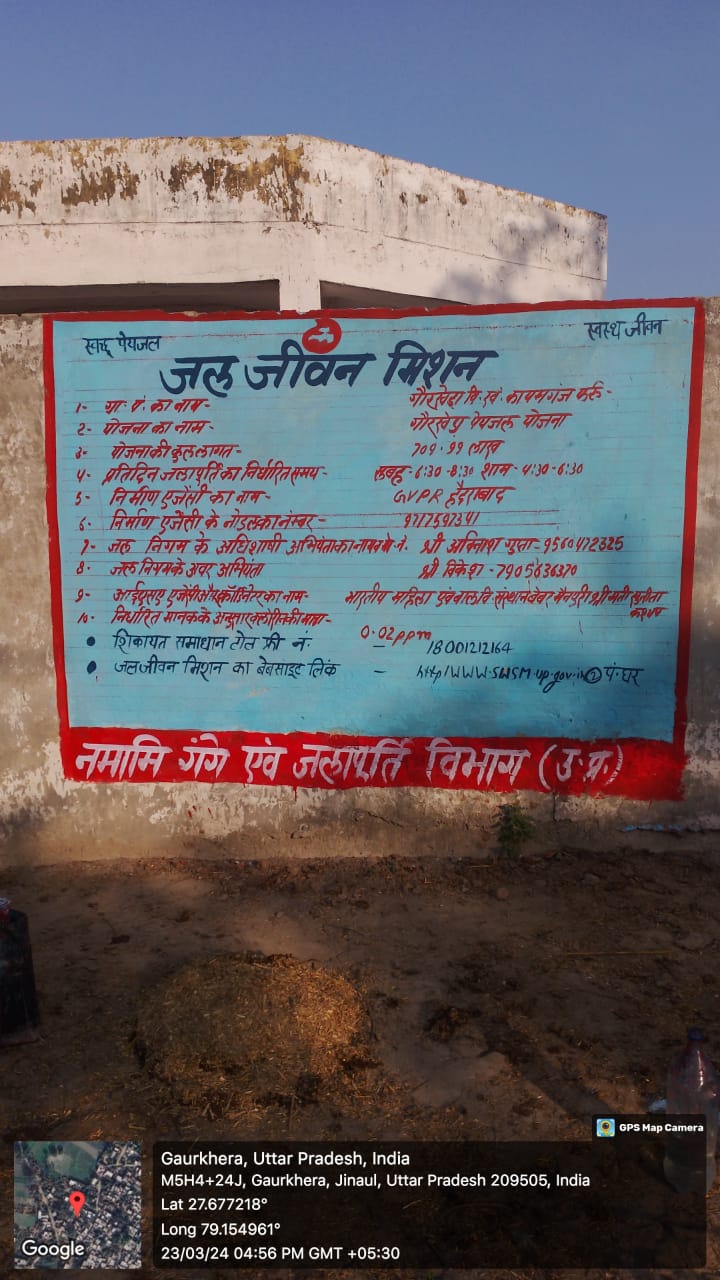 स्वच्छ पेयजल
स्वस्थ जीवन
जल जीवन मिशन
1- ग्रा. पं. का नाम- गौरखेडा वि. एवं. कायमगंज फर्रु-
2- योजना का नाम- गौरखेड़ा पेयजल योजना
3- योजना की कुल लागत- 709.99 लाख
4- प्रतिदिन जलापूर्ति का निर्धारित समय- सुबह-6:30-8:30 शाम-4:30-6:30
5- निर्माण एजेंसी का नाम- GVPR हैदराबाद
6- निर्माण एजेंसी के नोडल का नंम्बर- 9177597341
7- जल निगम के अधिशाषी अभियंता का नाम व मो. नं. श्री अविनाश गुप्ता-9560472325
8- जल निगम के अवर अभियंता श्री विकेश-7905636370
9- आईएसए एजेंसी और कॉर्डिनेटर का नाम- भारतीय महिला एवं बाल वि. संस्थान बेवर मैनपुरी श्रीमती सुनीता कश्यप
10- निर्धारित मानक के अनुसार क्लोरिन की मात्रा- 0.02ppm
• शिकायत समाधान टोल फ्री नं. - 18001212164
• जल जीवन मिशन का बेबसाइट लिंक - http/WWW.SWSM-up.gov.in ② पं. घर
नमामि गंगे एंव जलापूर्ति विभाग (उ.प्र.)
GPS Map Camera
Gaurkhera, Uttar Pradesh, India
M5H4+24J, Gaurkhera, Jinaul, Uttar Pradesh 209505, India
Lat 27.677218°
Long 79.154961°
23/03/24 04:56 PM GMT +05:30
Google